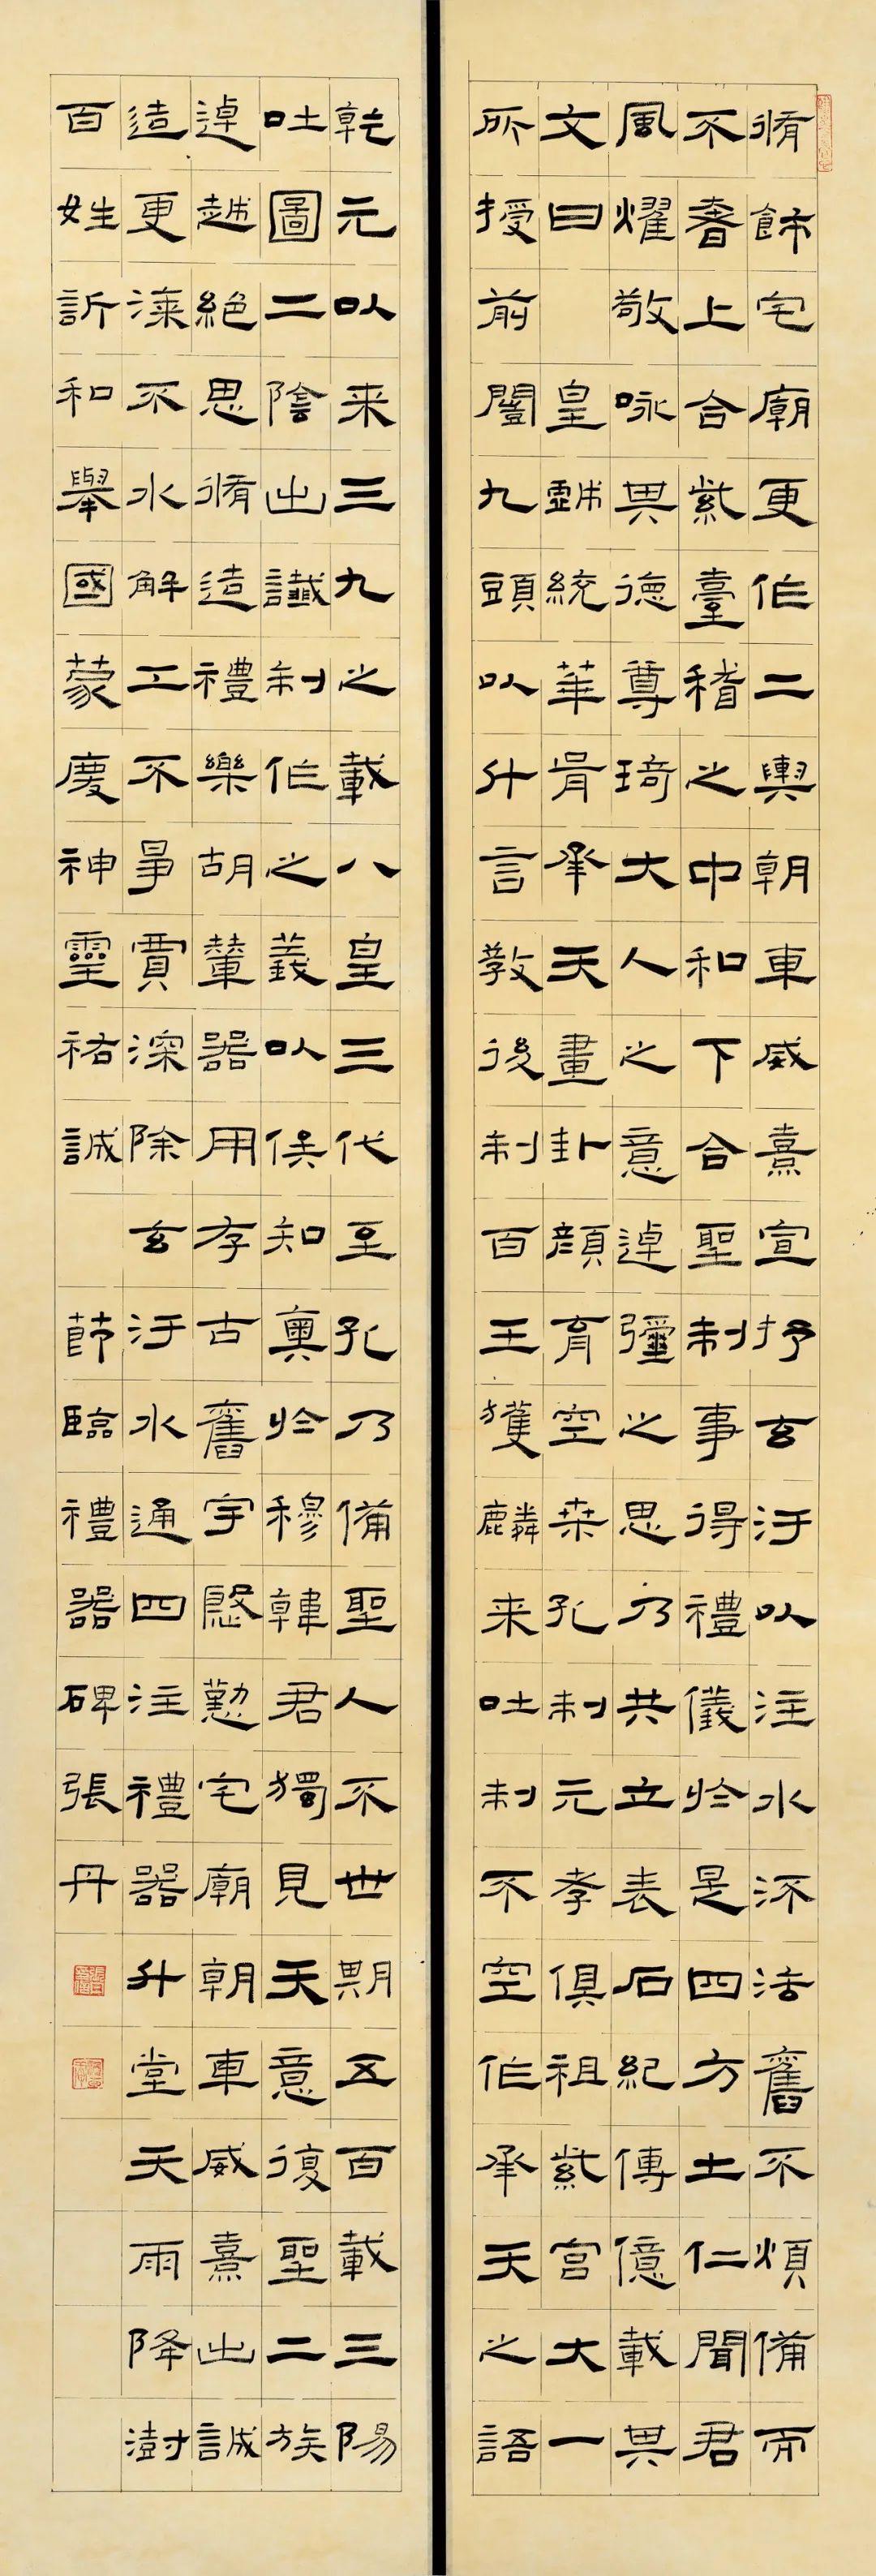 脩飾宅廟更作二輿朝車威熹宣抒玄汙以注水流法舊不煩備而
不奢上合紫臺稽之中和下合聖制事得禮儀於是四方土仁聞君
風燿敬咏其德尊琦大人之意逴彌之思乃共立表石紀傳億載其
文曰 皇戲統華胥承天畫卦顏育空桑孔制元孝俱祖紫宮大一
所授前闓九頭以升言教後制百王獲麟来吐制不空作承天之語
乾元以来三九之載八皇三代至孔乃備聖人不世期五百載三陽
吐圖二陰出讖制作之義以俟知奧於穆韓君獨見天意復聖二族
逴越絕思脩造禮樂胡輦器用存古舊宇慇懃宅廟朝車威熹出誠
造更漆不水解工不爭賈深除玄汙水通四注禮器升堂天雨降澍
百姓訢和舉國蒙慶神靈祐誠
節臨禮器碑張丹